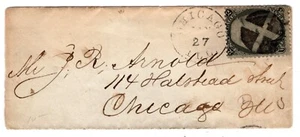 CHICAGO
27
Mr J. R. Arnold
114 Halstead Street
Chicago Ills